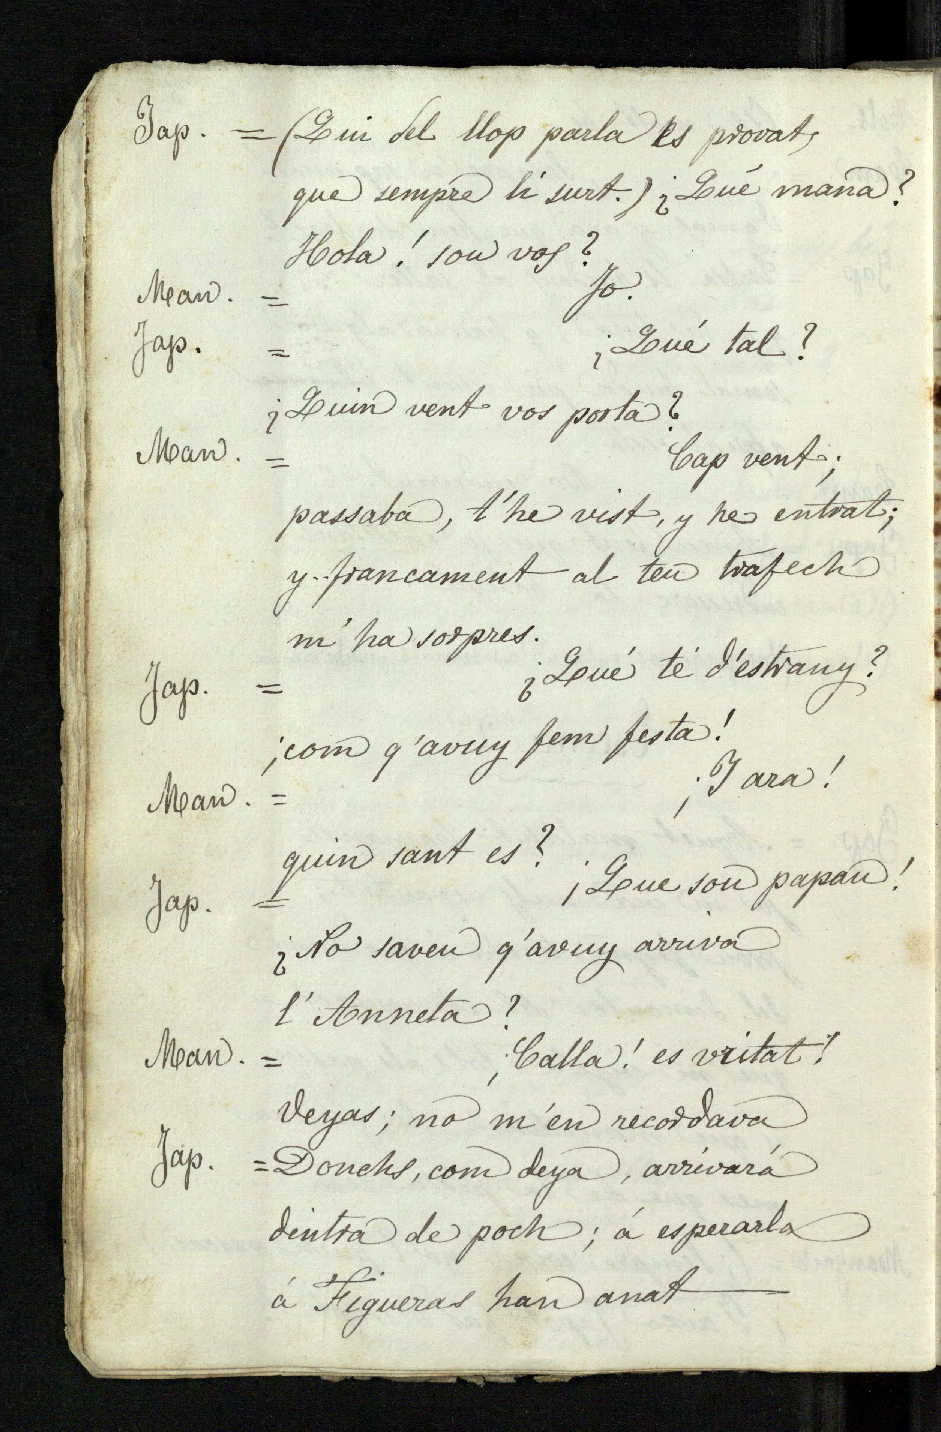 Jap. = (Qui del llop parla es provat,
que sempre li surt.) ¿Qué mana?
Hola! sou vos?
Man. = Jo.
Jap. = ¿Qué tal?
¿Quin vent vos porta?
Man. = Cap vent;
passaba, t'he vist, y he entrat;
y francament al teu trafech
m'ha sorpres.
Jap. = ¿Qué té d'estrany?
¡com q'avuy fem festa!
Man. = ¡Y ara!
quin sant es?
Jap. = ¡Que sou papau!
¿No saveu q'avuy arriva
l'Anneta?
Man. = ¡Calla! es vritat!
deyas; no m'en recordava
Jap. = Donchs, com deya, arrivará
dintra de poch; á esperarla
á Figueras han anat